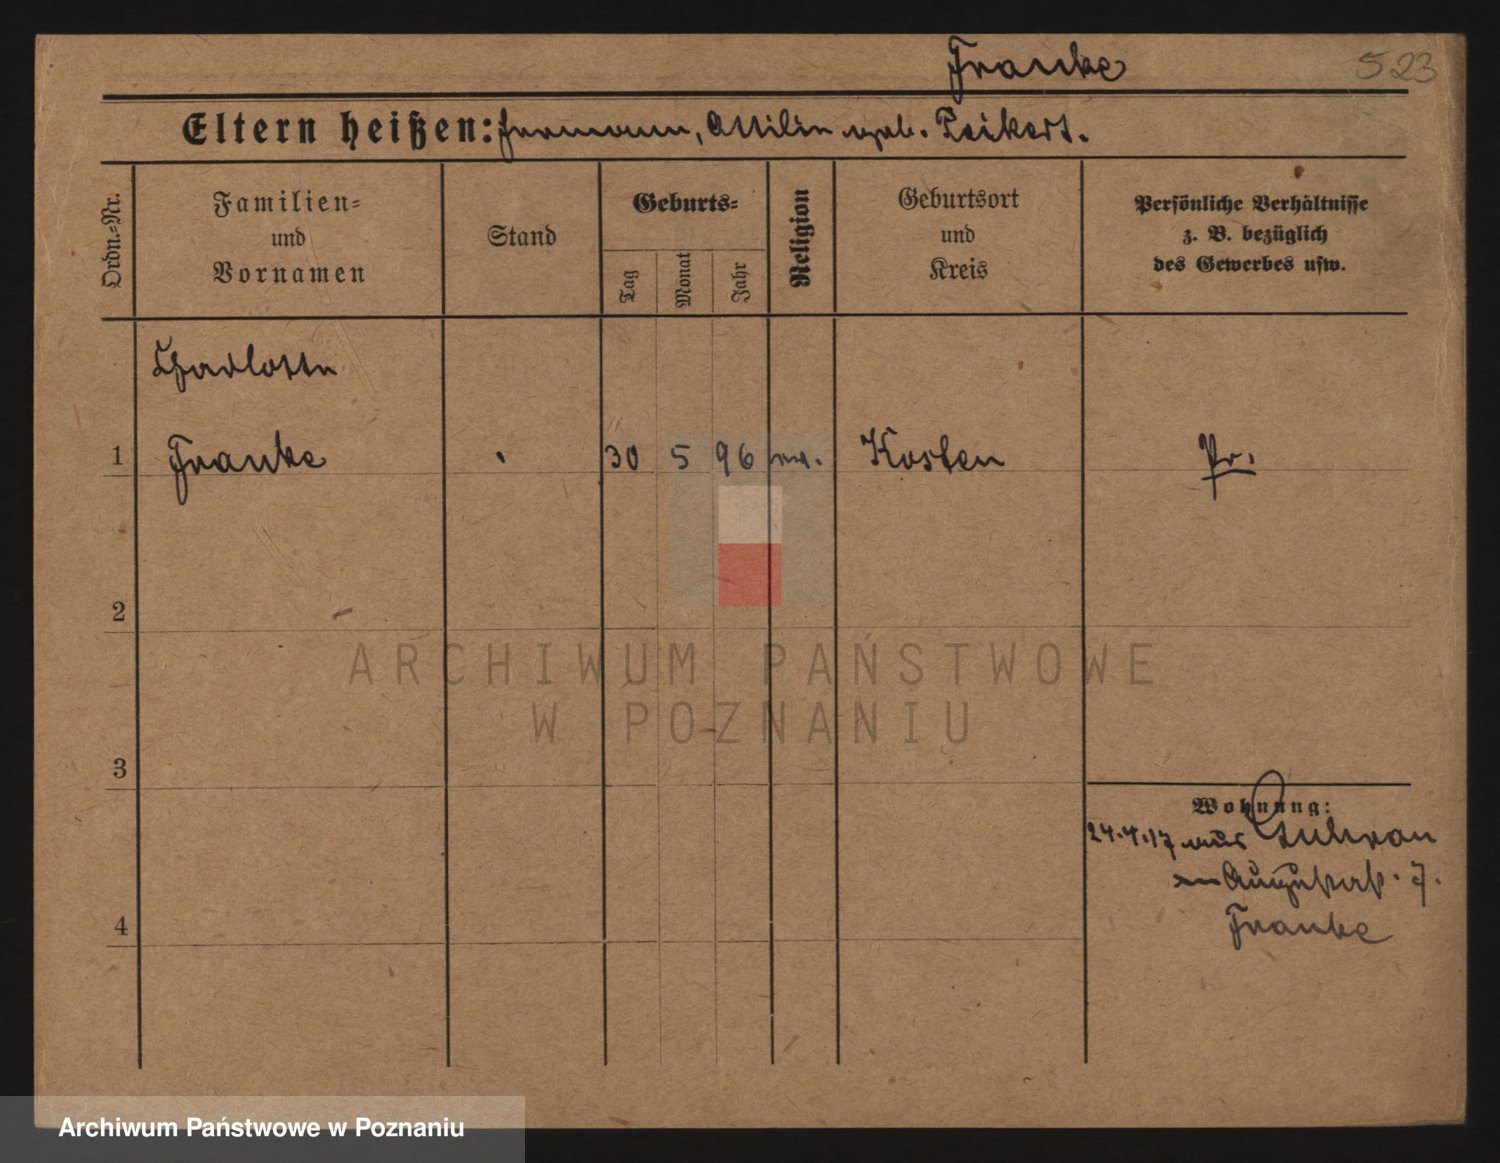 Franke
523
Eltern heißen: Hermann, Ottilie geb. Peikert.
Ordn.-Nr.
Familien- und Vornamen
Stand
Geburts-
Tag
Monat
Jahr
Religion
Geburtsort und Kreis
Persönliche Verhältnisse
z. B. bezüglich
des Gewerbes usw.
Charlotte
1 Franke 30 5 96 ev. Kosten Pr.
2
ARCHIWUM PAŃSTWOWE
W POZNANIU
3
Wohnung:
24.4.17 aus Guhrau
Augustastr. 7.
Franke
4
Archiwum Państwowe w Poznaniu